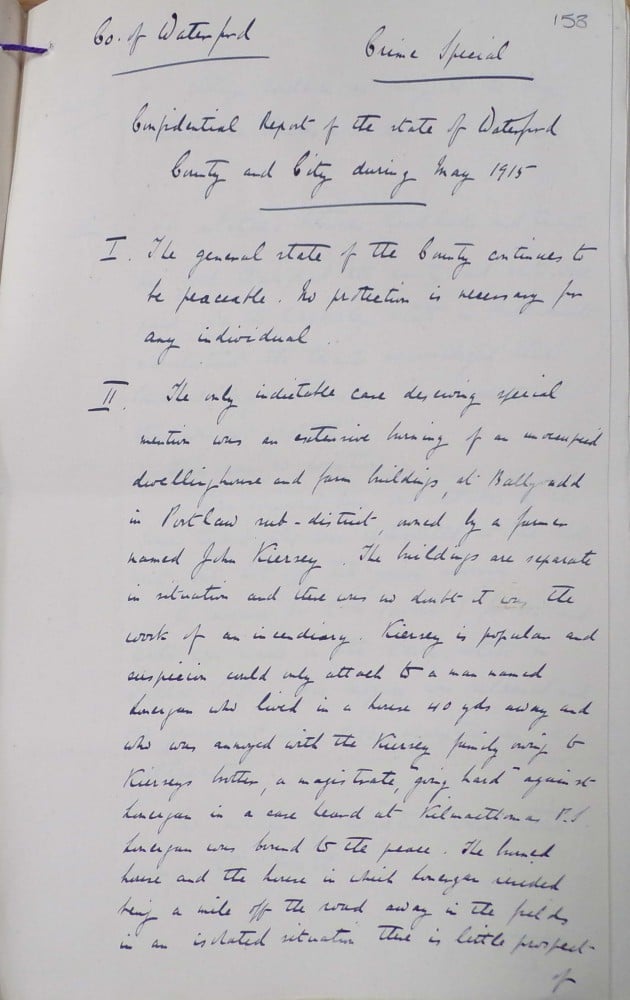 158
Co. of Waterford
Crime Special
Confidential Report of the state of Waterford
County and City during May 1915
I. The general state of the County continues to
be peaceable. No protection is necessary for
any individual.
II. The only indictable case deserving special
mention was an extensive burning of an unoccupied
dwellinghouse and farm buildings, at Ballycadd
in Portlaw sub-district, owned by a farmer
named John Kiersey. The buildings are separate
in situation and there was no doubt it was the
work of an incendiary. Kiersey is popular and
suspicion could only attach to a man named
Lonergan who lived in a house 40 yds away and
who was annoyed with the Kiersey family owing to
Kierseys brother, a magistrate, "going hard" against
Lonergan in a case heard at Kilmacthomas P.S.
Lonergan was bound to the peace. The burned
house and the house in which Lonergan resided
being a mile off the road away in the fields
in an isolated situation there is little prospect
of